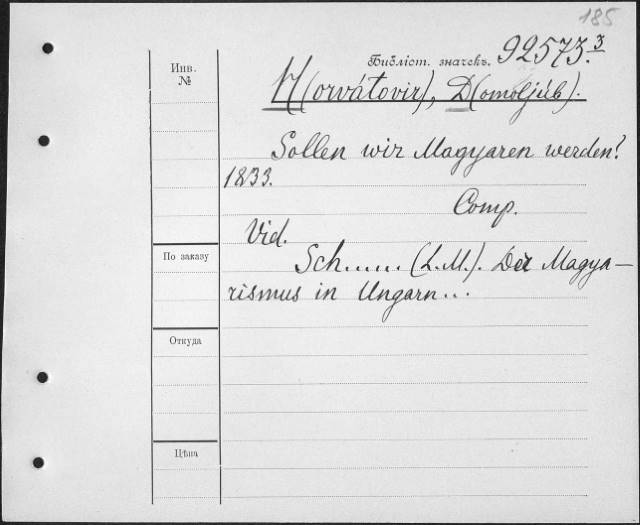 185
Библіот. значекъ. 92573.3
Инв.
№
H(orvátovir), D(omoljúb).
Sollen wir Magyaren werden?
1833.
Comp.
Vid.
Sch..... (L.M.). Der Magya-
По заказу
rismus in Ungarn...
Откуда
Цѣна